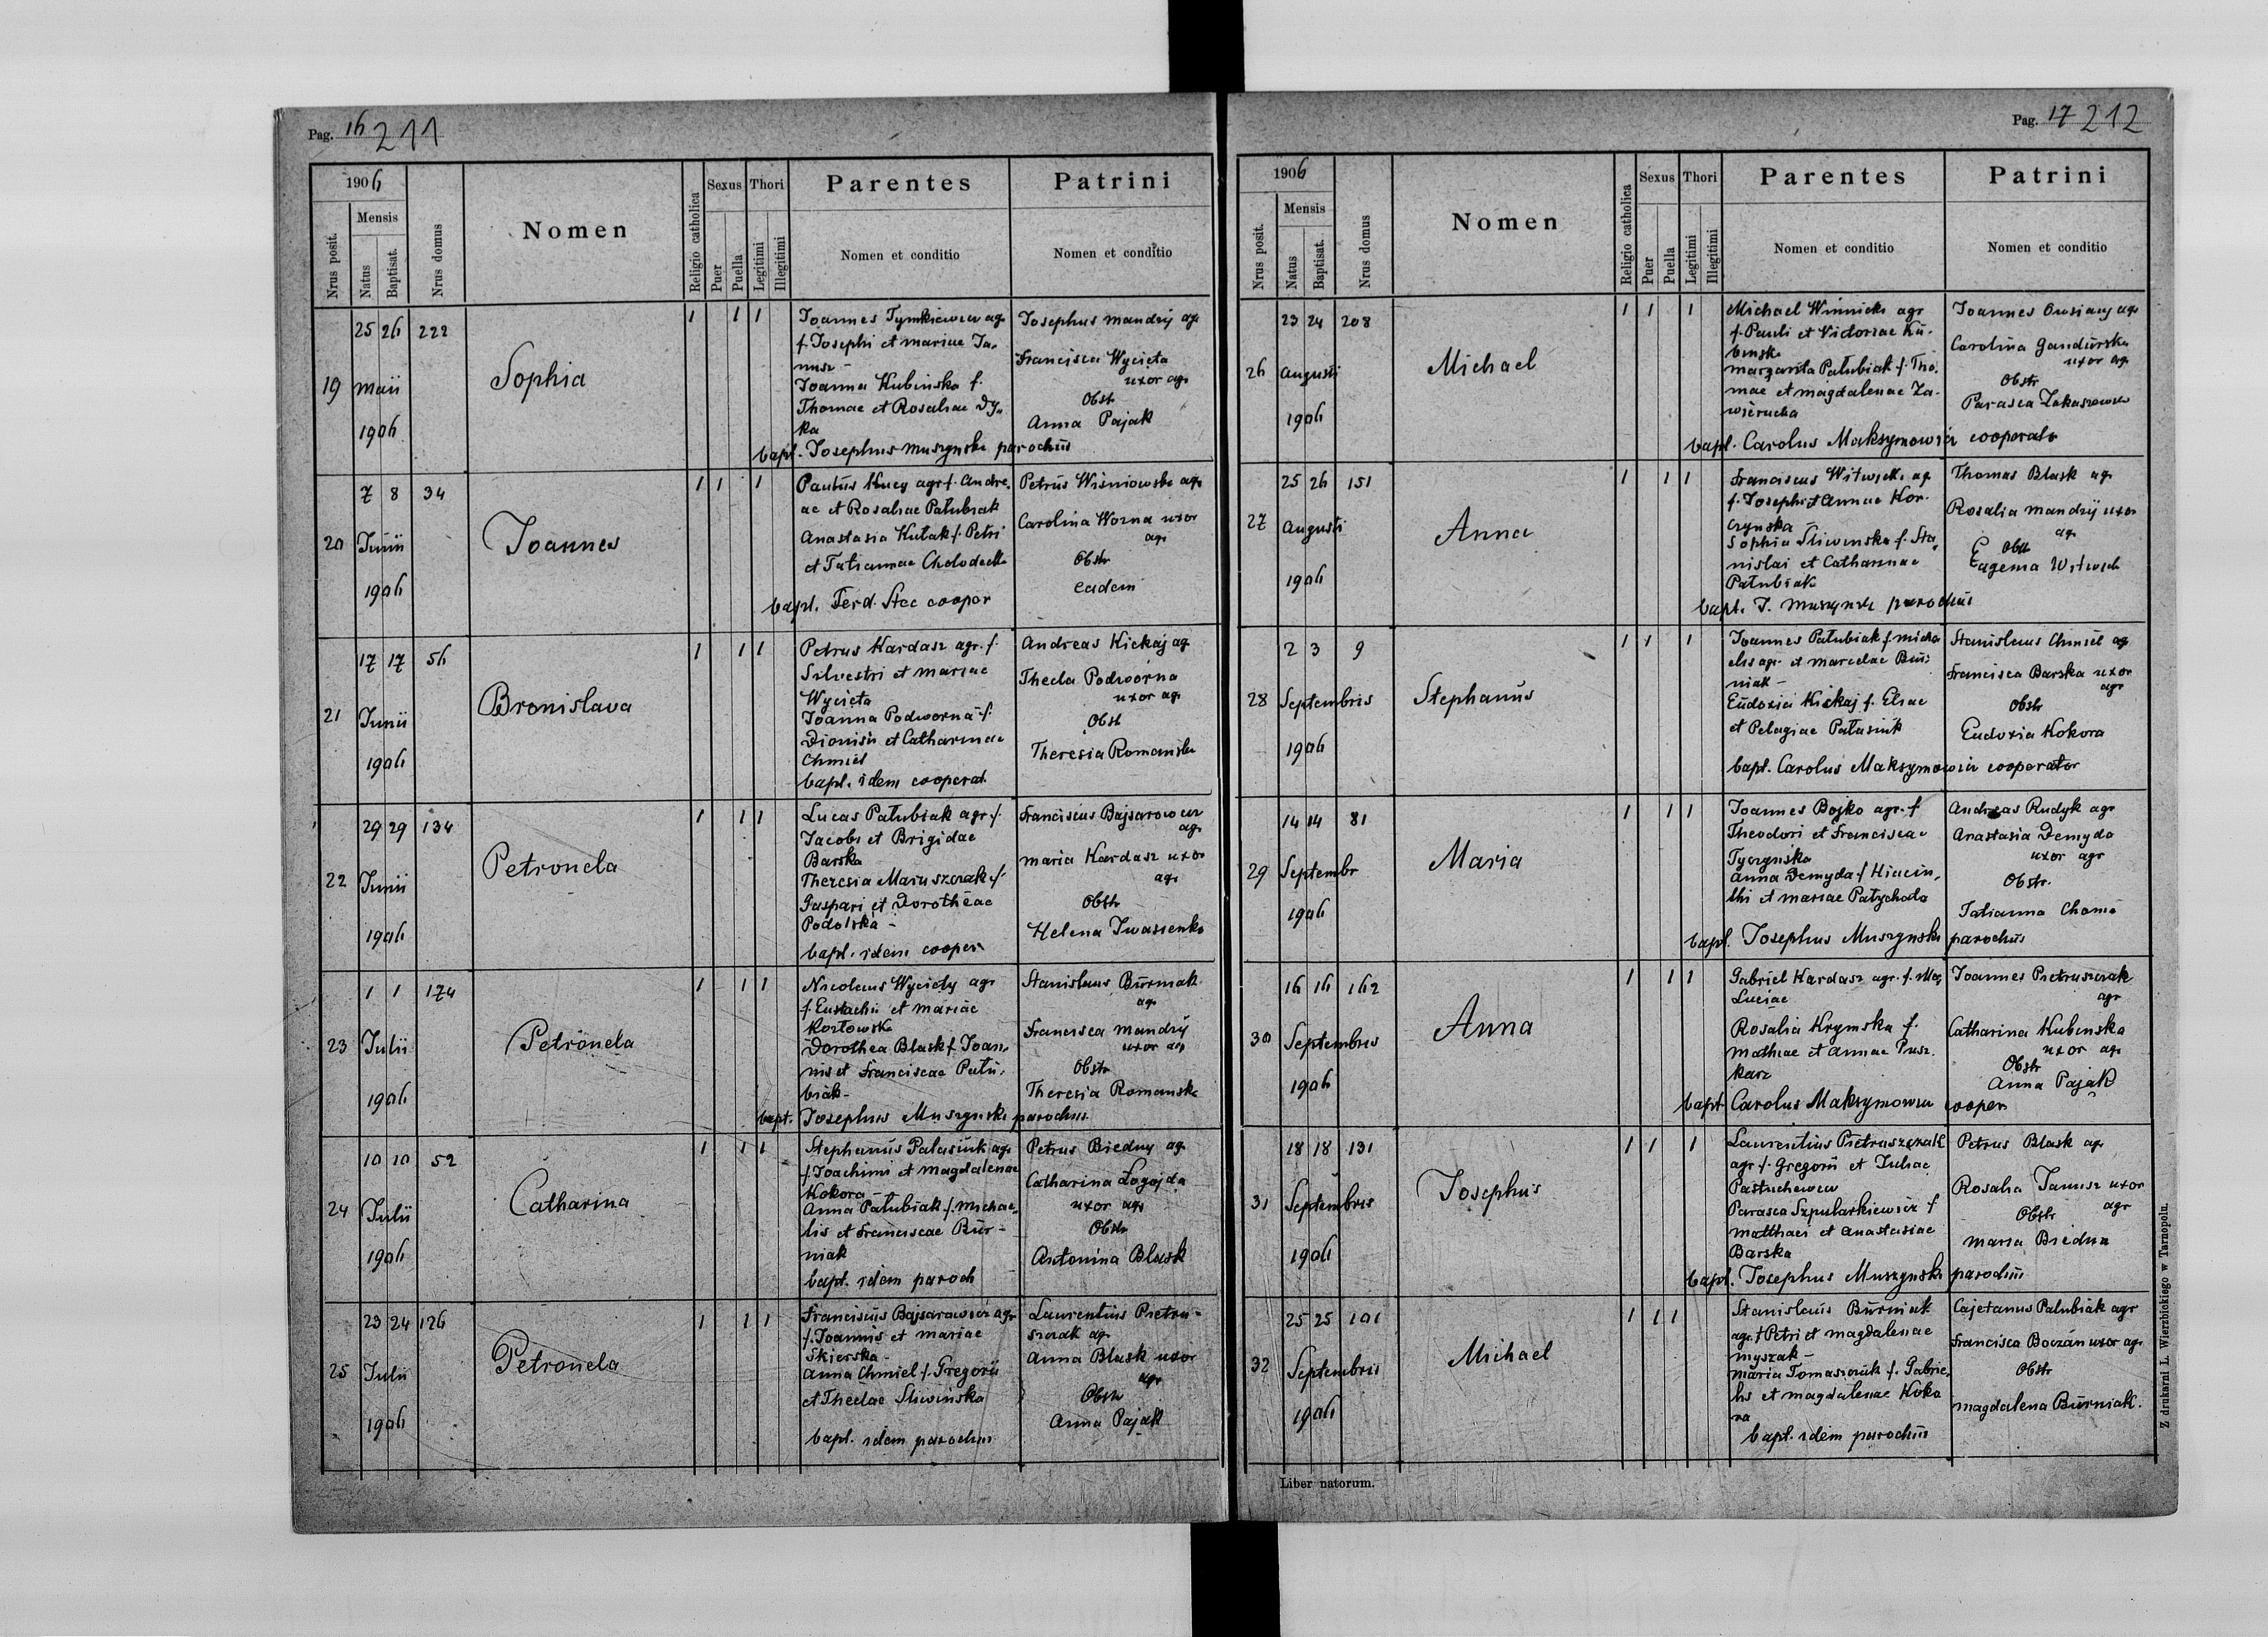 Pag. 16 211
1906
Nrus posit.
Mensis
Natus
Baptisat.
Nrus domus
Nomen
Religio catholica
Sexus
Puer
Puella
Thori
Legitimi
Illegitimi
Parentes
Nomen et conditio
Patrini
Nomen et conditio
19
25 26 222
Maii
1906
Sophia
1 1 1
Joannes Tymkiewicz agr
f. Josephi et Mariae Ja-
nusz -
Joanna Kubinska f.
Thomae et Rosaliae Dy-
ka
Josephus Mandrij agr
Francisca Wycięta
uxor agr
Obstr
Anna Pajak
bapt. Josephus Muszynski parochus
20
7 8 34
Junii
1906
Joannes
1 1 1
Paulus Kucy agr f. Andre-
ae et Rosaliae Pałubiak
Anastasia Kułak f. Petri
et Tatiannae
Petrus Wiśniowski agr
Carolina Worna uxor
agr
Obstr
eadem
bapt. Ferd. Stec cooper
21
17 17 56
Junii
1906
Bronislava
1 1 1
Petrus Kardasz agr. f.
Silvestri et Mariae
Wycięta
Joanna Podworna f.
Dionisii et Catharinae
Chmiel
Andreas Kickaj agr
Thecla Podworna
uxor agr
Obstr
Theresia Romanska
bapt. idem cooperat.
22
29 29 134
Junii
1906
Petronela
1 1 1
Lucas Pałubiak agr f.
Jacobi et Brigidae
Barska
Theresia Maruszczak f.
Gaspari et Dorotheae
Podolska -
Franciscus Bajsarowicz
agr
Maria Kardasz uxor
agr
Obstr
Helena Iwasienko
bapt. idem cooper
23
1 1 174
Julii
1906
Petronela
1 1 1
Nicolaus Wycięty agr
f. Eustachii et Mariae
Kozłowska
Dorothea Blask f. Joan-
nis et Franciscae Pału-
biak -
Stanislaus Burniak
agr
Francisca Mandrij
uxor agr
Obstr
Theresia Romanska
bapt. Josephus Muszynski parochus
24
10 10 52
Julii
1906
Catharina
1 1 1
Stephanus Palasiuk agr
f. Joachimi et Magdalenae
Kokora -
Anna Pałubiak f. Michae-
lis et Franciscae Bur-
niak
Petrus Biedny agr
Catharina Łogojda
uxor agr
Obstr
Antonina Blask
bapt. idem paroch
25
23 24 126
Julii
1906
Petronela
1 1 1
Franciscus Bajsarowicz agr
f. Joannis et Mariae
Skierska -
Anna Chmiel f. Gregorii
et Theclae Sliwińska
Laurentius Pietru-
szczak agr
Anna Blask uxor
agr
Obstr
Anna Pajak
bapt. idem parochus
Pag. 17 212
1906
Nrus posit.
Mensis
Natus
Baptisat.
Nrus domus
Nomen
Religio catholica
Sexus
Puer
Puella
Thori
Legitimi
Illegitimi
Parentes
Nomen et conditio
Patrini
Nomen et conditio
26
23 24 208
Augusti
1906
Michael
1 1 1
Michael Winnicki agr
f. Pauli et Victoriae Ku-
binska
Margarita Pałubiak f. Tho-
mae et Magdalenae Za-
wierucha
Joannes agr
Carolina Gandurska
uxor agr
Obstr
Parasca
bapt. Carolus Maksymowicz cooperator
27
25 26 151
Augusti
1906
Anna
1 1 1
Franciscus Witwicki agr
f. Josephi et Annae Kor-
czynska -
Sophia Sliwinska f. Sta-
nislai et Catharinae
Pałubiak
Thomas Blask agr
Rosalia Mandrij uxor
agr
Obstr
Eugenia
bapt. J. Muszynski parochus
28
2 3 9
Septembris
1906
Stephanus
1 1 1
Joannes Pałubiak f. Micha-
elis agr et Marcelae Bur-
niak -
Eudoxia Kickaj f. Eliae
et Pelagiae Pałasiuk
Stanislaus Chmiel agr
Francisca Barska uxor
agr
Obstr
Eudoxia Kokora
bapt. Carolus Maksymowicz cooperator
29
14 14 81
Septembr
1906
Maria
1 1 1
Joannes Bojko agr. f
Theodori et Franciscae
Tyczynska
Anna Demyda f Hiacin-
thi et Mariae Patychoda
Andreas Rudyk agr
Anastasia Demyda
uxor agr
Obstr.
Tatianna
bapt. Josephus Muszynski parochus
30
16 16 162
Septembris
1906
Anna
1 1 1
Gabriel Kardasz agr. f.
Luciae
Rosalia Krymska f.
Mathiae et Annae Pusz-
karz
Joannes Pietruszczak
agr
Catharina Kubinska
uxor agr
Obstr
Anna Pajak
bapt Carolus Maksymowicz cooper
31
18 18 131
Septembris
1906
Josephus
1 1 1
Laurentius Pietruszczak
agr f. Gregorii et Juliae
Pastuchewicz
Parasca Szpularkiewicz f
Matthaei et Anastasiae
Barska
Petrus Blask agr
Rosalia Janusz uxor
agr
Obstr
Maria Biedna
bapt. Josephus Muszynski parochus
32
25 25 101
Septembris
1906
Michael
1 1 1
Stanislaus Burniak
agr. f Petri et Magdalenae
Myszak -
Maria Tomaszczuk f. Gabrie-
lis et Magdalenae Koko
ra
Cajetanus Palubiak agr
Francisca Boczan uxor agr
Obstr
Magdalena Burniak.
bapt. idem parochus
Liber natorum.
Z drukarni L. Wierzbickiego w Tarnopolu.